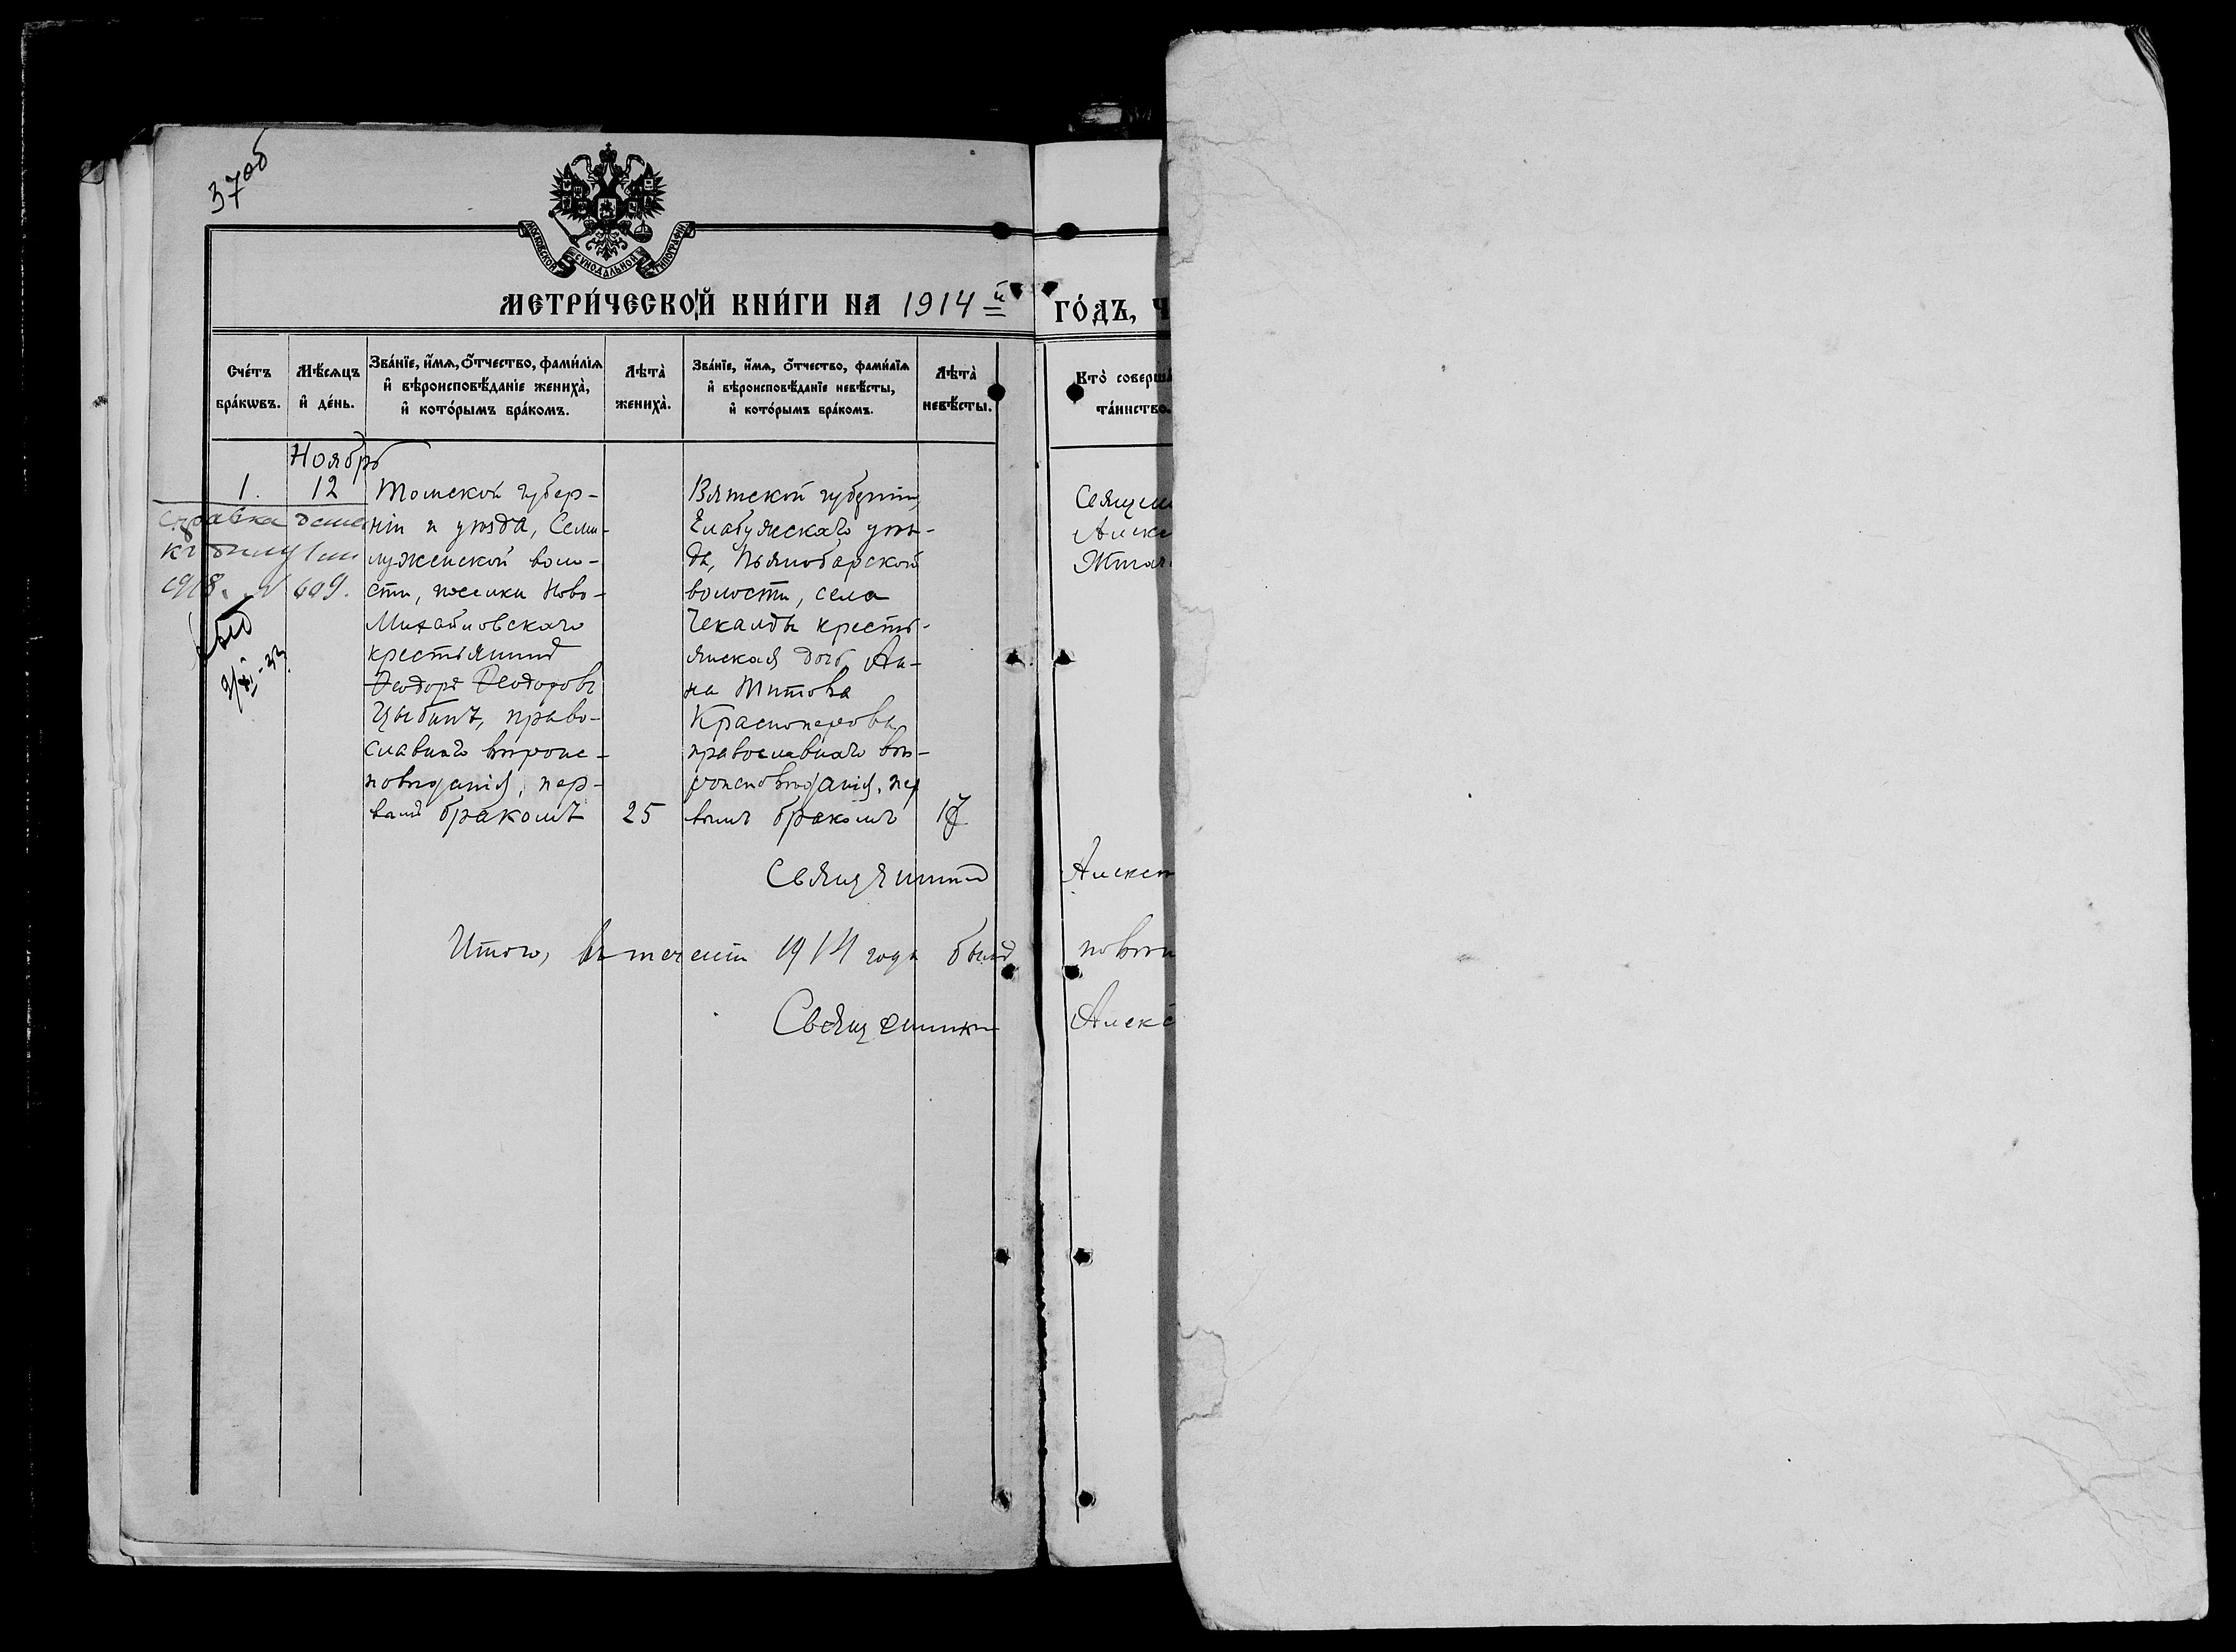 37об
МОСКОВСКОЙ СѴНОДАЛЬНОЙ ТИПОГРАФІИ
МЕТРИ́ЧЕСКОЙ КНИ́ГИ НА 1914 й ГО́ДЪ, Ч
Сче́тъ бра́кωвъ.
Мѣ́сяцъ и҆ де́нь.
Зва́нїе, и҆́мя, ѻ҆́тчество, фами́лїя
и҆ вѣроисповѣ́данїе жениха̀,
и҆ кото́рымъ бра́комъ.
Лѣта̀ жениха̀.
Зва́нїе, и҆́мя, ѻ҆́тчество, фами́лїя
и҆ вѣроисповѣ́данїе невѣ́сты,
и҆ кото́рымъ бра́комъ.
Лѣта̀ невѣ́сты.
Кто̀ соверша
та́инство.
Ноябрь
1. 12
Справка дана
1918. № 609.
Томской губер-
ніи и уѣзда, Семи-
луженской воло-
сти, поселка Ново-
Михайловскаго
крестьянинъ
Ѳеодоръ Ѳеодоровъ
Цыбинъ, право-
славнаго вѣроис-
повѣданія, пер-
вымъ бракомъ
25
Вятской губерніи,
Елабужскаго уѣз-
да, Пьяноборской
волости, села
Чекалды кресть-
янская дочь Ан-
на Титова
Красноперова,
православнаго вѣ-
роисповѣданія, пер
вымъ бракомъ
17
Священ
Алекс
Священникъ Алекс
Итого, въ теченіи 1914 года былъ повѣн
Священникъ Алекс